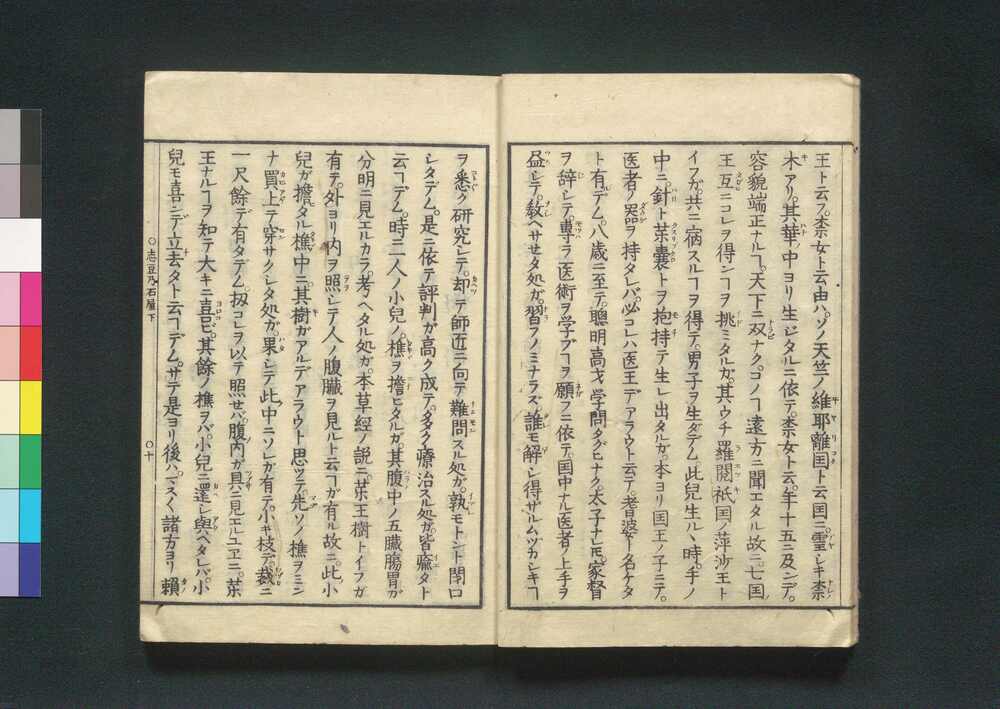 王ト云フ。柰女ト云由ハ。ソノ天竺ノ維耶離国ト云国ニ。霊シキ柰
木アリ。其華ノ中ヨリ生ジタルニ依テ。柰女ト云。年十五ニ及ンデ。
容貌端正ナルヿ。天下ニ双ナク。コノヿ遠方ニ聞エタル故ニ。七国ノ
王互ニコレヲ得ンヿヲ挑ミタルガ。其ウチ羅閲祇国ノ萍沙王ト
イフガ。共ニ宿スルヿヲ得テ。男子ヲ生ダデム。此兒生ルヽ時。手ノ
中ニ。針ト薬嚢トヲ抱持テ生レ出タルガ。本ヨリ国王ノ子ニテ。
医者ノ器ヲ持タレバ。必コレハ医王デアラウト云テ。耆婆ト名ケタ
ト有デム。八歳ニ至テ。聰明高才学問タグヒナク。太子ナレ𪜈。家督
ヲ辞シテ。専ラ医術ヲ学ブヿヲ願フニ依テ。国中ナル医者ノ上手ヲ
益シテ。教ヘサセタ処ガ。習フノミナラズ。誰モ解シ得ザルムツカシキヿ
ヲ悉ク研究シテ。却テ師匠ニ向テ難問スル処ガ。孰モトント閉口
シタデム。是ニ依テ評判ガ高ク成テ。多ク療治スル処ガ。皆瘉タト
云ヿデム。時ニ一人ノ小兒ノ。樵ヲ擔ヒタルガ。其腹中ノ五臓腸胃ガ
分明ニ見エルカラ。考ヘタル処ガ。本草經ノ説ニ。薬王樹トイフガ
有テ。外ヨリ内ヲ照シテ。人ノ腹臓ヲ見ルト云ヿガ有ル故ニ。此小
兒ガ擔タル樵中ニ。其樹ガアルデアラウト思ツテ。先ソノ樵ヲミン
ナ買上テ穿サクシタ処ガ。果シテ此中ニソレガ有テ。小キ枝デ。裁ニ
一尺餘デ有タデム。扨コレヲ以テ照セバ。腹内ガ具ニ見エルユヱニ。薬
王ナルヿヲ知テ大キニ喜ビ。其餘ノ樵ヲバ。小兒ニ還シ與ヘタレバ。小
兒モ喜ンデ立去タト云ヿデム。サテ是ヨリ後ハ。マスく諸方ヨリ頼
○志豆乃石屋下
○十